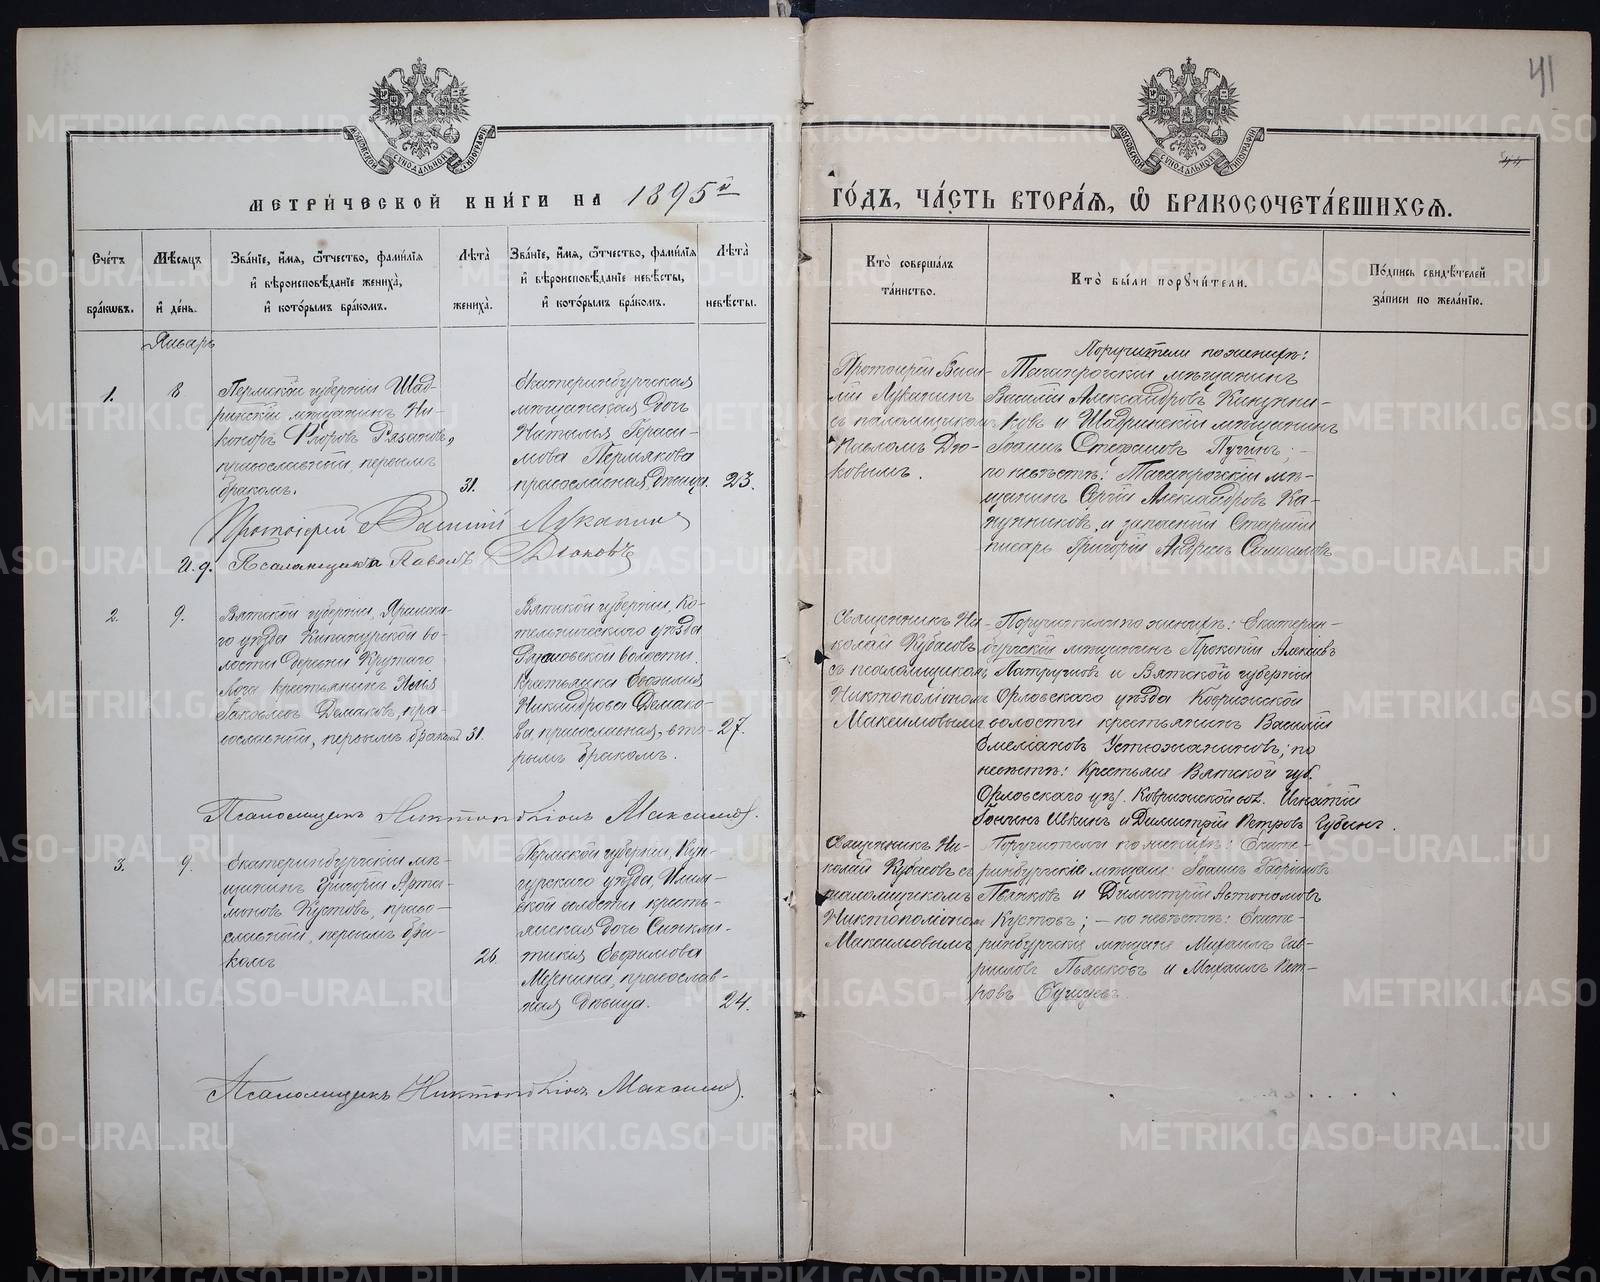 41
44
МОСКОВСКОЙ СѴНОДАЛЬНОЙ ТИПОГРАФІИ
МОСКОВСКОЙ СѴНОДАЛЬНОЙ ТИПОГРАФІИ
МЕТРИ́ЧЕСКОЙ КНИ́ГИ НА 1895й
ГО́ДЪ, ЧА́СТЬ ВТОРА́Я, Ѽ БРАКОСОЧЕТА́ВШИХСЯ.
Сче́тъ
бра́кѡвъ.
Мѣ́сяцъ
и҆ де́нь.
Зва́нїе, и҆́мя, ѻ҆́тчество, фами́лїя
и҆ вѣроисповѣ́данїе жениха̀,
и҆ кото́рымъ бра́комъ.
Лѣ́та
жениха̀.
Зва́нїе, и҆́мя, ѻ҆́тчество, фами́лїя
и҆ вѣроисповѣ́данїе невѣ́сты,
и҆ кото́рымъ бра́комъ.
Лѣ́та
невѣ́сты.
Кто̀ соверша́лъ
та́инство.
Кто̀ бы́ли порꙋчи́тели.
По́дпись свидѣ́телей
за́писи по жела́нїю.
Январь
1.
8
Пермской губерніи Шад-
ринскій мѣщанинъ Ни-
каноръ Флоровъ Рязановъ,
православный, первымъ
бракомъ.
31.
Екатеринбургская
мѣщанская дочь
Наталія Гераси-
мова Пермякова
православная, дѣвица.
23.
Протоіерей Васи-
лій Луканинъ
съ псаломщикомъ
Павломъ Дю-
ковымъ.
Поручители по женихѣ:
Таганрогскій мѣщанинъ
Василій Александровъ
и Шадринскій мѣщанинъ
Іоаннъ Стефановъ
по невѣстѣ: Таганрогскій мѣ-
щанинъ Сергій Александровъ
и запасный старшій
писарь Григорій
Протоіерей Василій Луканинъ
И. д. Псаломщика Павелъ Дюковъ
2.
9.
Вятской губерніи, Яранска-
го уѣзда Кичинурской во-
лости деревни Крутаго
Лога крестьянинъ Илья
Іаковлевъ Демаковъ, пра-
вославный, первымъ бракомъ
31.
Вятской губерніи, Ко-
тельническаго уѣзда
волости
крестьянка Евфимія
Никандрова Демако-
ва православная, вто-
рымъ бракомъ.
27.
Священникъ Ни-
колай Кубасовъ
съ псаломщикомъ
Никтополіономъ
Максимовымъ
Поручители по женихѣ: Екатерин-
бургскій мѣщанинъ Прокопій Алексѣевъ
и Вятской губерніи
Орловскаго уѣзда Ковринской
волости крестьянинъ Василій
Емельяновъ Устюжаниновъ; по
невѣстѣ: Крестьяне Вятской губ.
Орловскаго уѣз. Ковринской вол. Игнатій
Ивкинъ и Димитрій Петровъ Губинъ.
Псаломщикъ Никтополіонъ Максимовъ.
3.
9.
Екатеринбургскій мѣ-
щанинъ Григорій Арта-
моновъ Кустовъ, право-
славный, первымъ бра-
комъ
26.
Пермской губерніи, Кун-
гурскаго уѣзда, Илим-
ской волости кресть-
янская дочь Синкли-
тикія Евфимова
православ-
ная дѣвица.
24.
Священникъ Ни-
колай Кубасовъ съ
псаломщикомъ
Никтополіономъ
Максимовымъ
Поручители по женихѣ: Екате-
ринбургскіе мѣщане: Іоаннъ Гавріиловъ
Пьянковъ и Димитрій Автономовъ
Кустовъ; — по невѣстѣ: Екате-
ринбургскіе мѣщане Михаилъ Гав-
риловъ Пьянковъ и Михаилъ Пет-
ровъ
Псаломщикъ Никтополіонъ Максимовъ.
METRIKI.GASO-URAL.RU